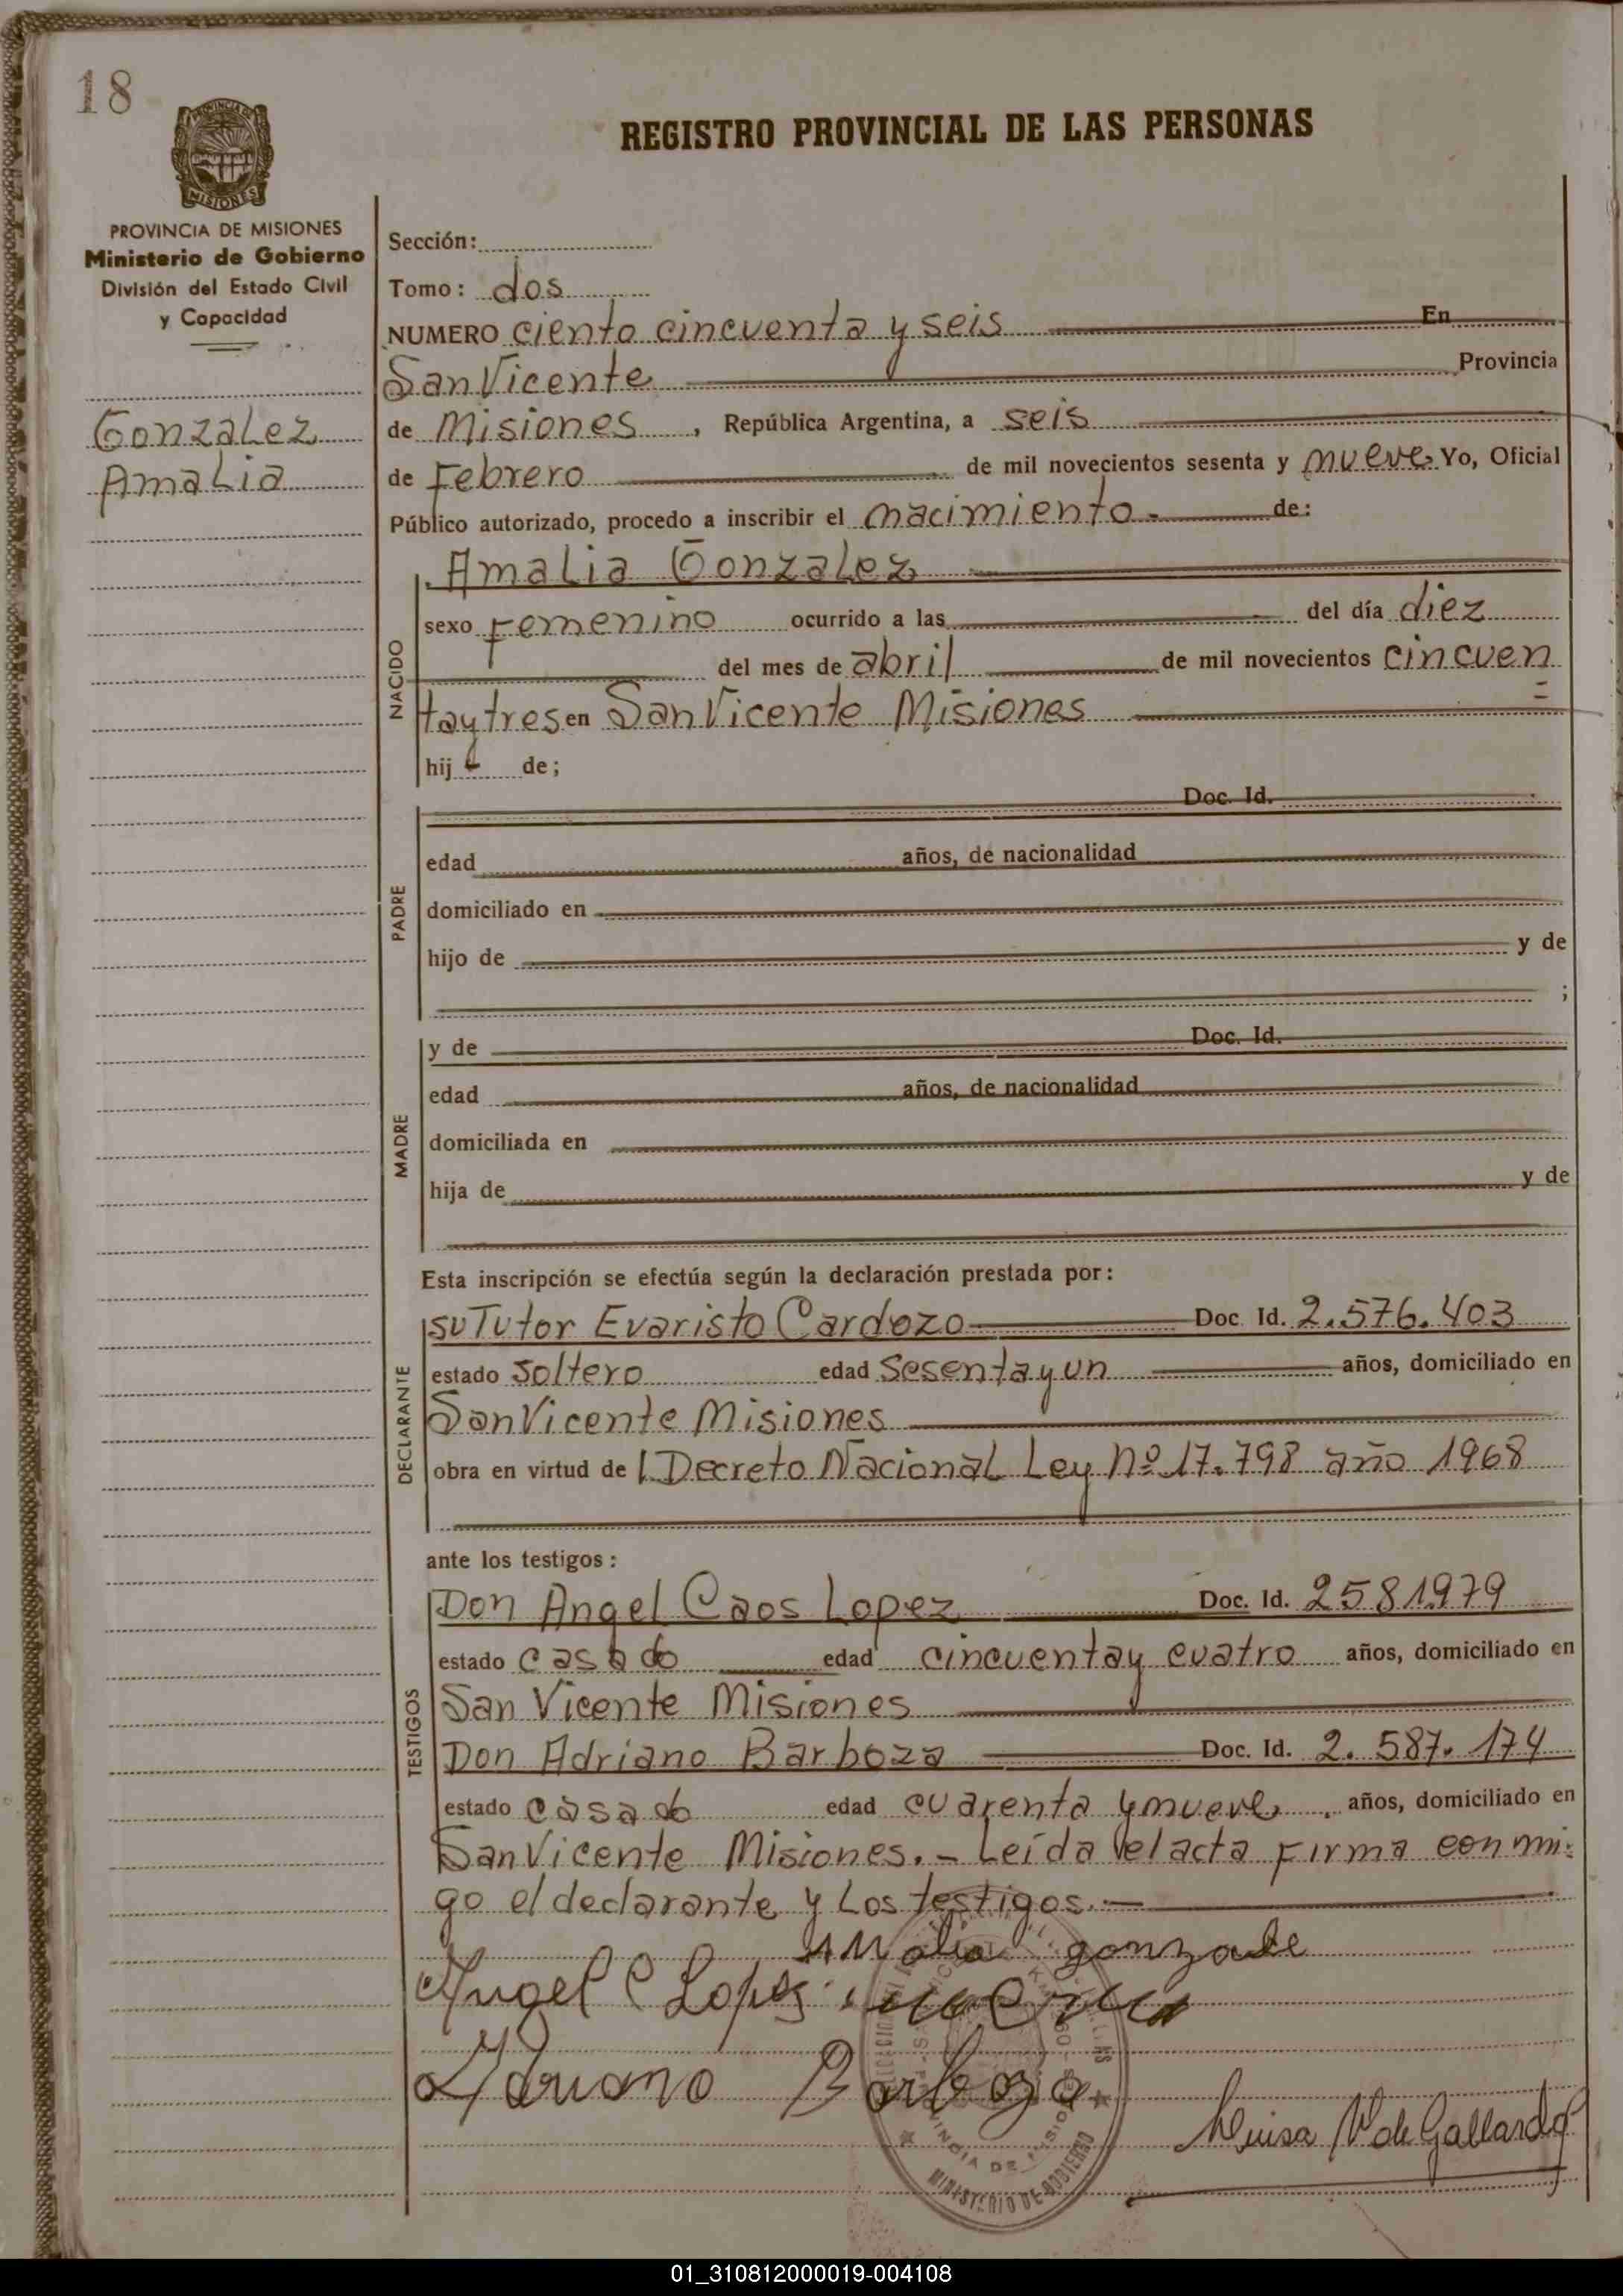 18
REGISTRO PROVINCIAL DE LAS PERSONAS
PROVINCIA DE MISIONES
Ministerio de Gobierno
División del Estado Civil
y Capacidad
Gonzalez
Amalia
Sección:
Tomo: dos
NUMERO ciento cincuenta y seis En
San Vicente Provincia
de Misiones, República Argentina, a seis
de Febrero de mil novecientos sesenta y nueve Yo, Oficial
Público autorizado, procedo a inscribir el nacimiento.- de:
NACIDO
Amalia Gonzalez
sexo Femenino ocurrido a las del día diez
del mes de abril de mil novecientos cincuen=
taytres en San Vicente Misiones
hij de;
PADRE
Doc. Id.
edad años, de nacionalidad
domiciliado en
hijo de y de
;
MADRE
y de Doc. Id.
edad años, de nacionalidad
domiciliada en
hija de y de
Esta inscripción se efectúa según la declaración prestada por:
DECLARANTE
su Tutor Evaristo Cardozo Doc. Id. 2.576.403
estado soltero edad Sesentayun años, domiciliado en
San Vicente Misiones
obra en virtud de l Decreto Nacional Ley Nº 17.798 año 1968
ante los testigos:
TESTIGOS
Don Angel Caos Lopez Doc. Id. 2581979
estado casado edad cincuentay cuatro años, domiciliado en
San Vicente Misiones
Don Adriano Barboza Doc. Id. 2.587.174
estado casado edad cuarenta y nueve años, domiciliado en
San Vicente Misiones.- Leída el acta Firma con mi=
go el declarante y Los testigos.-
Amalia gonzale
Angel C Lopez
Adriano Barboza
Luisa V de Gallardo
MINISTERIO DE GOBIERNO
01_310812000019-004108